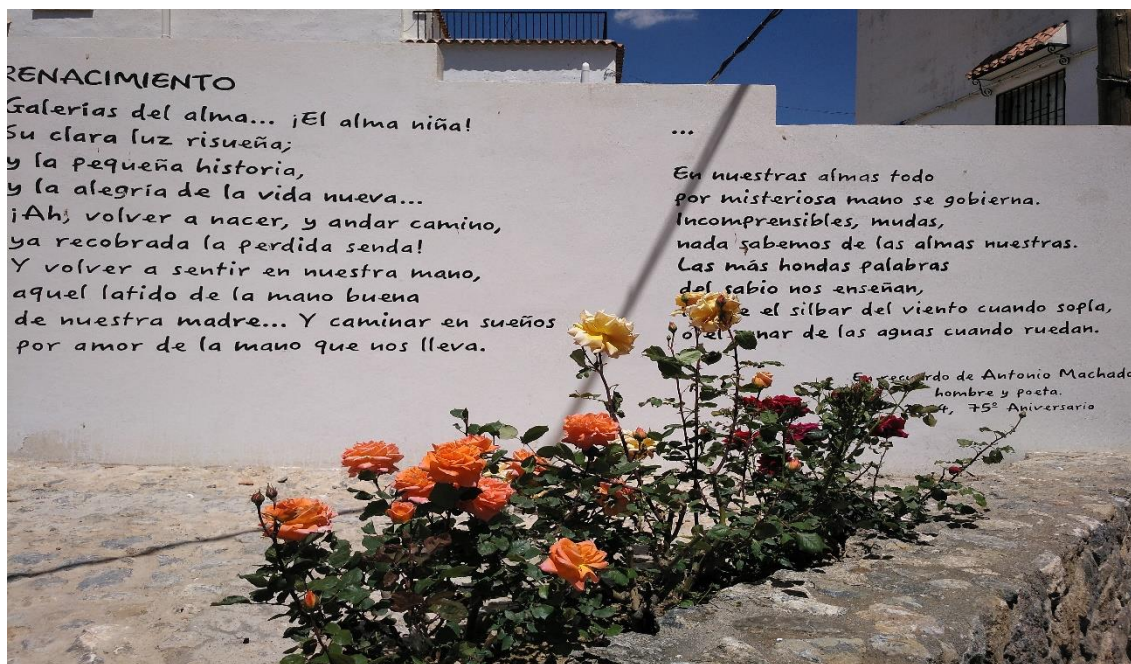 RENACIMIENTO
Galerías del alma... ¡El alma niña!
Su clara luz risueña;
y la pequeña historia,
y la alegría de la vida nueva...
¡Ah, volver a nacer, y andar camino,
ya recobrada la perdida senda!
Y volver a sentir en nuestra mano,
aquel latido de la mano buena
de nuestra madre... Y caminar en sueños
por amor de la mano que nos lleva.
...
En nuestras almas todo
por misteriosa mano se gobierna.
Incomprensibles, mudas,
nada sabemos de las almas nuestras.
Las más hondas palabras
del sabio nos enseñan,
el silbar del viento cuando sopla,
o el de las aguas cuando ruedan.
recuerdo de Antonio Machado
hombre y poeta.
75º Aniversario